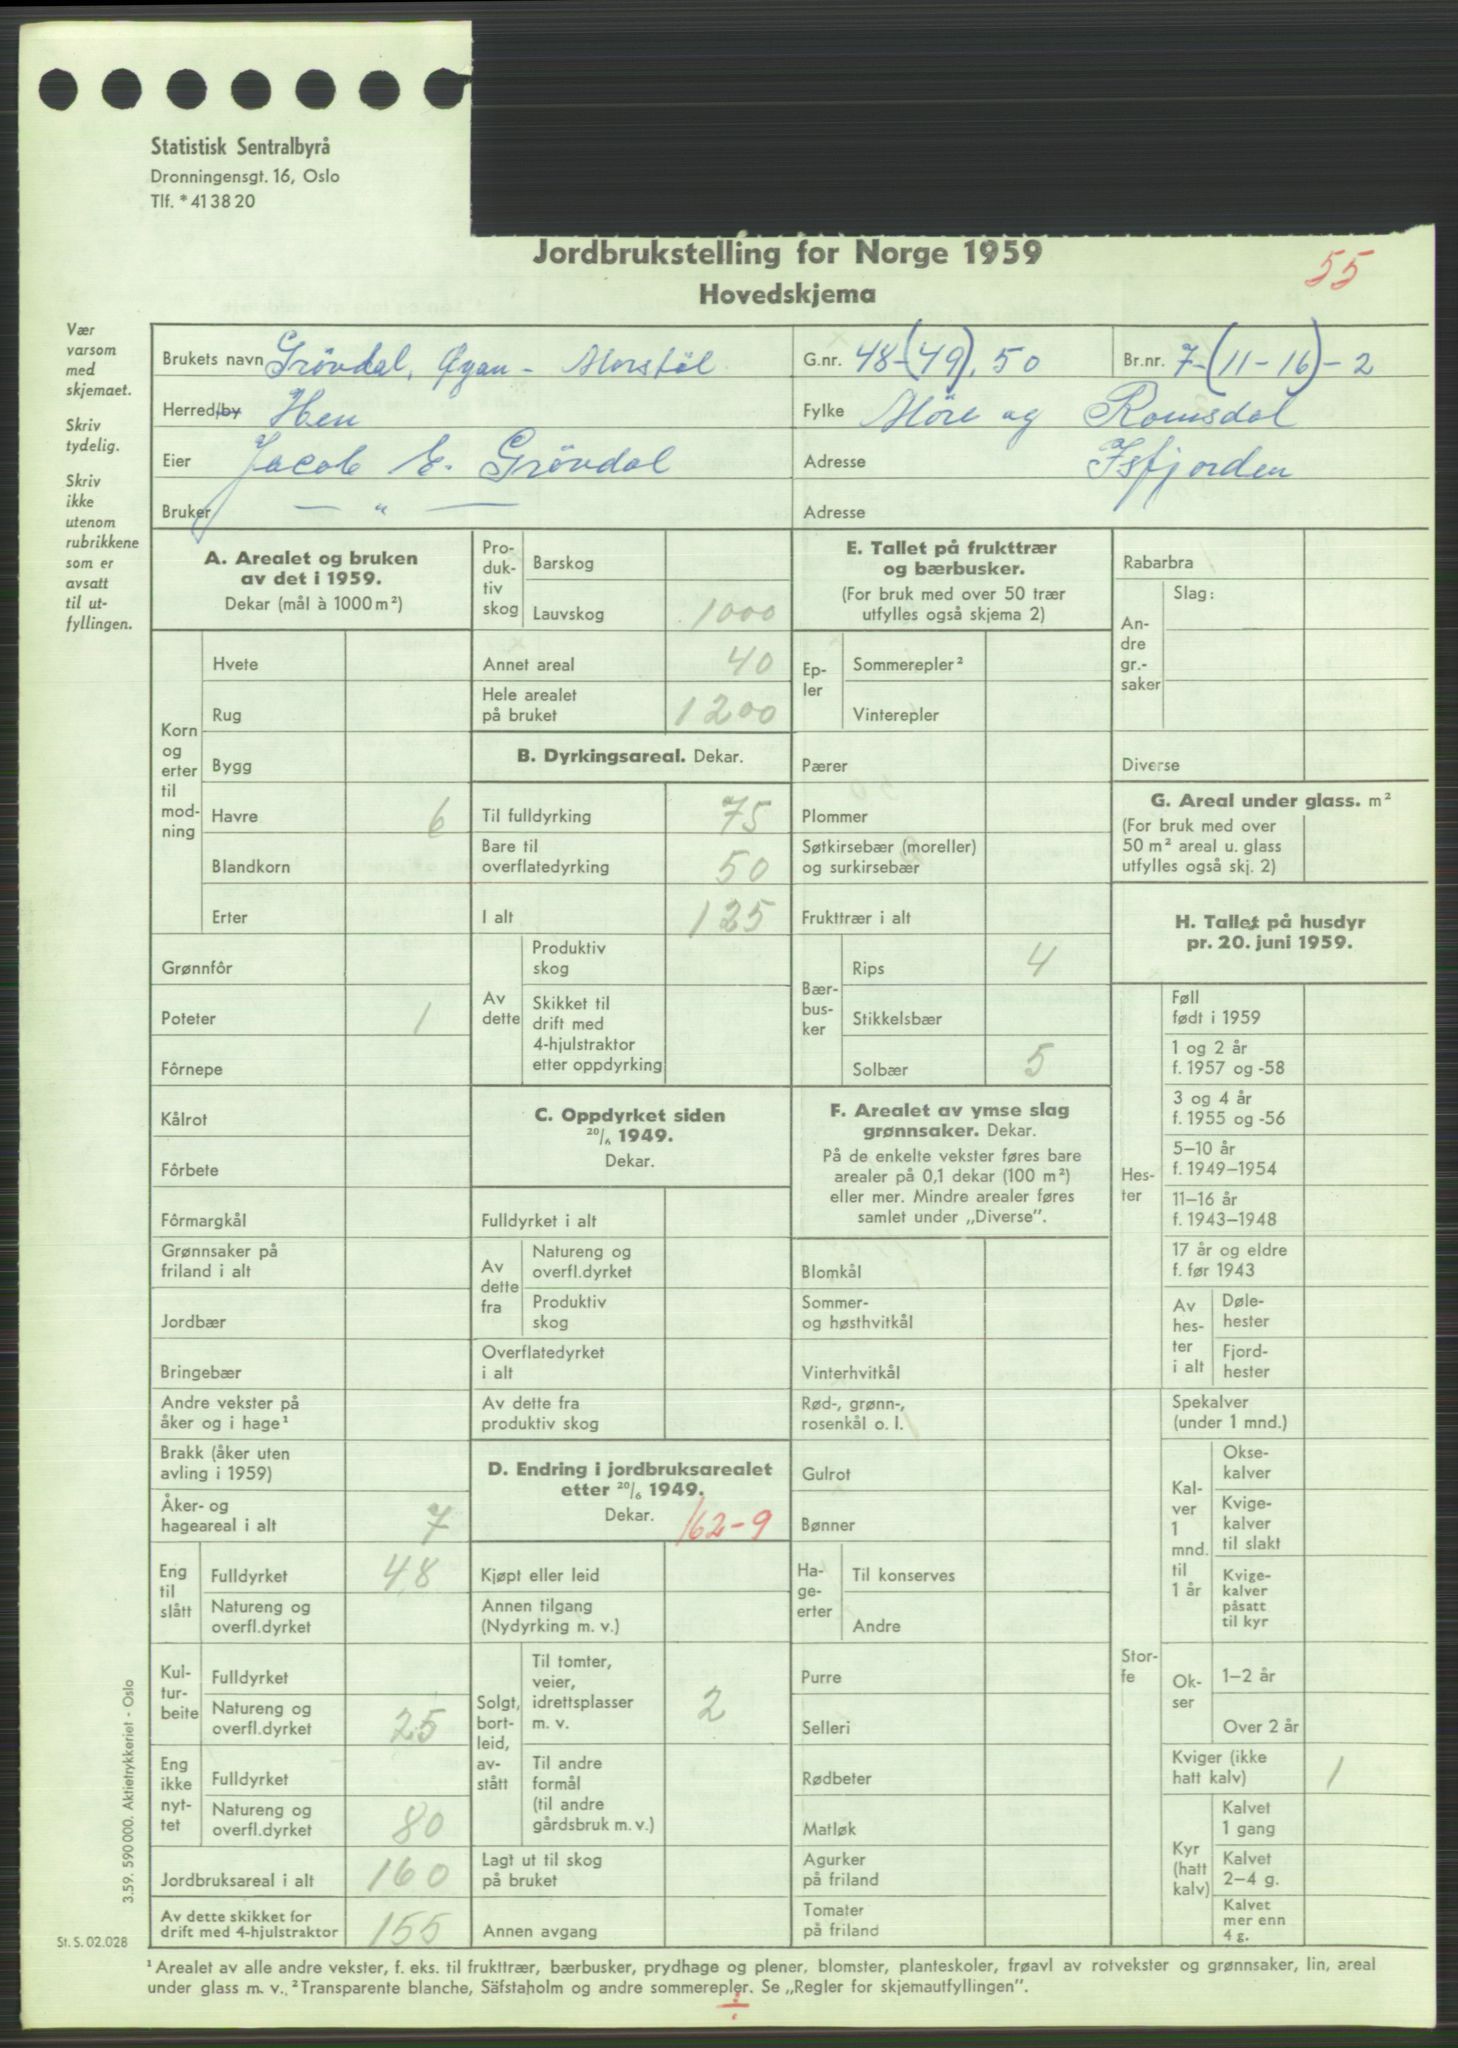 Statistisk Sentralbyrå
Dronningensgt. 16, Oslo
Tlf. * 41 38 20
Jordbrukstelling for Norge 1959
Hovedskjema
55
Vær
varsom
med
skjemaet.
Skriv
tydelig.
Skriv
ikke
utenom
rubrikkene
som er
avsatt
til ut-
fyllingen.
Brukets navn Grövdal, Øyan - Morstöl
G.nr. 48-(49), 50
Br.nr. 7-(11-16)-2
Herred/by Hen
Fylke Möre og Romsdal
Eier Jacob E. Grövdal
Adresse Isfjorden
Bruker — " —
Adresse
A. Arealet og bruken
av det i 1959.
Dekar (mål à 1000 m²)
Korn
og
erter
til
mod-
ning
Hvete
Rug
Bygg
Havre 6
Blandkorn
Erter
Grønnfôr
Poteter 1
Fôrnepe
Kålrot
Fôrbete
Fôrmargkål
Grønnsaker på
friland i alt
Jordbær
Bringebær
Andre vekster på
åker og i hage¹
Brakk (åker uten
avling i 1959)
Åker- og
hageareal i alt 7
Eng
til
slått
Fulldyrket 48
Natureng og
overfl.dyrket
Kul-
tur-
beite
Fulldyrket
Natureng og
overfl.dyrket 25
Eng
ikke
nyt-
tet
Fulldyrket
Natureng og
overfl.dyrket 80
Jordbruksareal i alt 160
Av dette skikket for
drift med 4-hjulstraktor 155
Pro-
duk-
tiv
skog
Barskog
Lauvskog 1000
Annet areal 40
Hele arealet
på bruket 1200
B. Dyrkingsareal. Dekar.
Til fulldyrking 75
Bare til
overflatedyrking 50
I alt 125
Av
dette
Produktiv
skog
Skikket til
drift med
4-hjulstraktor
etter oppdyrking
C. Oppdyrket siden
20/6 1949.
Dekar.
Fulldyrket i alt
Av
dette
fra
Natureng og
overfl.dyrket
Produktiv
skog
Overflatedyrket
i alt
Av dette fra
produktiv skog
D. Endring i jordbruksarealet
etter 20/6 1949.
Dekar. 162-9
Kjøpt eller leid
Annen tilgang
(Nydyrking m. v.)
Solgt,
bort-
leid,
av-
stått
Til tomter,
veier,
idrettsplasser
m. v. 2
Til andre
formål
(til andre
gårdsbruk m. v.)
Lagt ut til skog
på bruket
Annen avgang
E. Tallet på frukttrær
og bærbusker.
(For bruk med over 50 trær
utfylles også skjema 2)
Ep-
ler
Sommerepler²
Vinterepler
Pærer
Plommer
Søtkirsebær (moreller)
og surkirsebær
Frukttrær i alt
Bær-
bus-
ker
Rips 4
Stikkelsbær
Solbær 5
F. Arealet av ymse slag
grønnsaker. Dekar.
På de enkelte vekster føres bare
arealer på 0,1 dekar (100 m²)
eller mer. Mindre arealer føres
samlet under „Diverse”.
Blomkål
Sommer-
og høsthvitkål
Vinterhvitkål
Rød-, grønn-,
rosenkål o. l.
Gulrot
Bønner
Ha-
ge-
erter
Til konserves
Andre
Purre
Selleri
Rødbeter
Matløk
Agurker
på friland
Tomater
på friland
Rabarbra
An-
dre
gr.-
saker
Slag:
Diverse
G. Areal under glass. m²
(For bruk med over
50 m² areal u. glass
utfylles også skj. 2)
H. Tallet på husdyr
pr. 20. juni 1959.
Hes-
ter
Føll
født i 1959
1 og 2 år
f. 1957 og -58
3 og 4 år
f. 1955 og -56
5–10 år
f. 1949–1954
11–16 år
f. 1943–1948
17 år og eldre
f. før 1943
Av
hes-
ter
i alt
Døle-
hester
Fjord-
hester
Stor-
fe
Spekalver
(under 1 mnd.)
Kal-
ver
1
mnd.
til
1 år
Okse-
kalver
Kvige-
kalver
til slakt
Kvige-
kalver
påsatt
til kyr
Ok-
ser
1–2 år
Over 2 år
Kviger (ikke
hatt kalv) 1
Kyr
(hatt
kalv)
Kalvet
1 gang
Kalvet
2–4 g.
Kalvet
mer enn
4 g.
3.59. 590 000. Aktietrykkeriet - Oslo
St. S. 02.028
¹ Arealet av alle andre vekster, f. eks. til frukttrær, bærbusker, prydhage og plener, blomster, planteskoler, frøavl av rotvekster og grønnsaker, lin, areal
under glass m. v. ² Transparente blanche, Säfstaholm og andre sommerepler. Se „Regler for skjemautfyllingen”.
÷